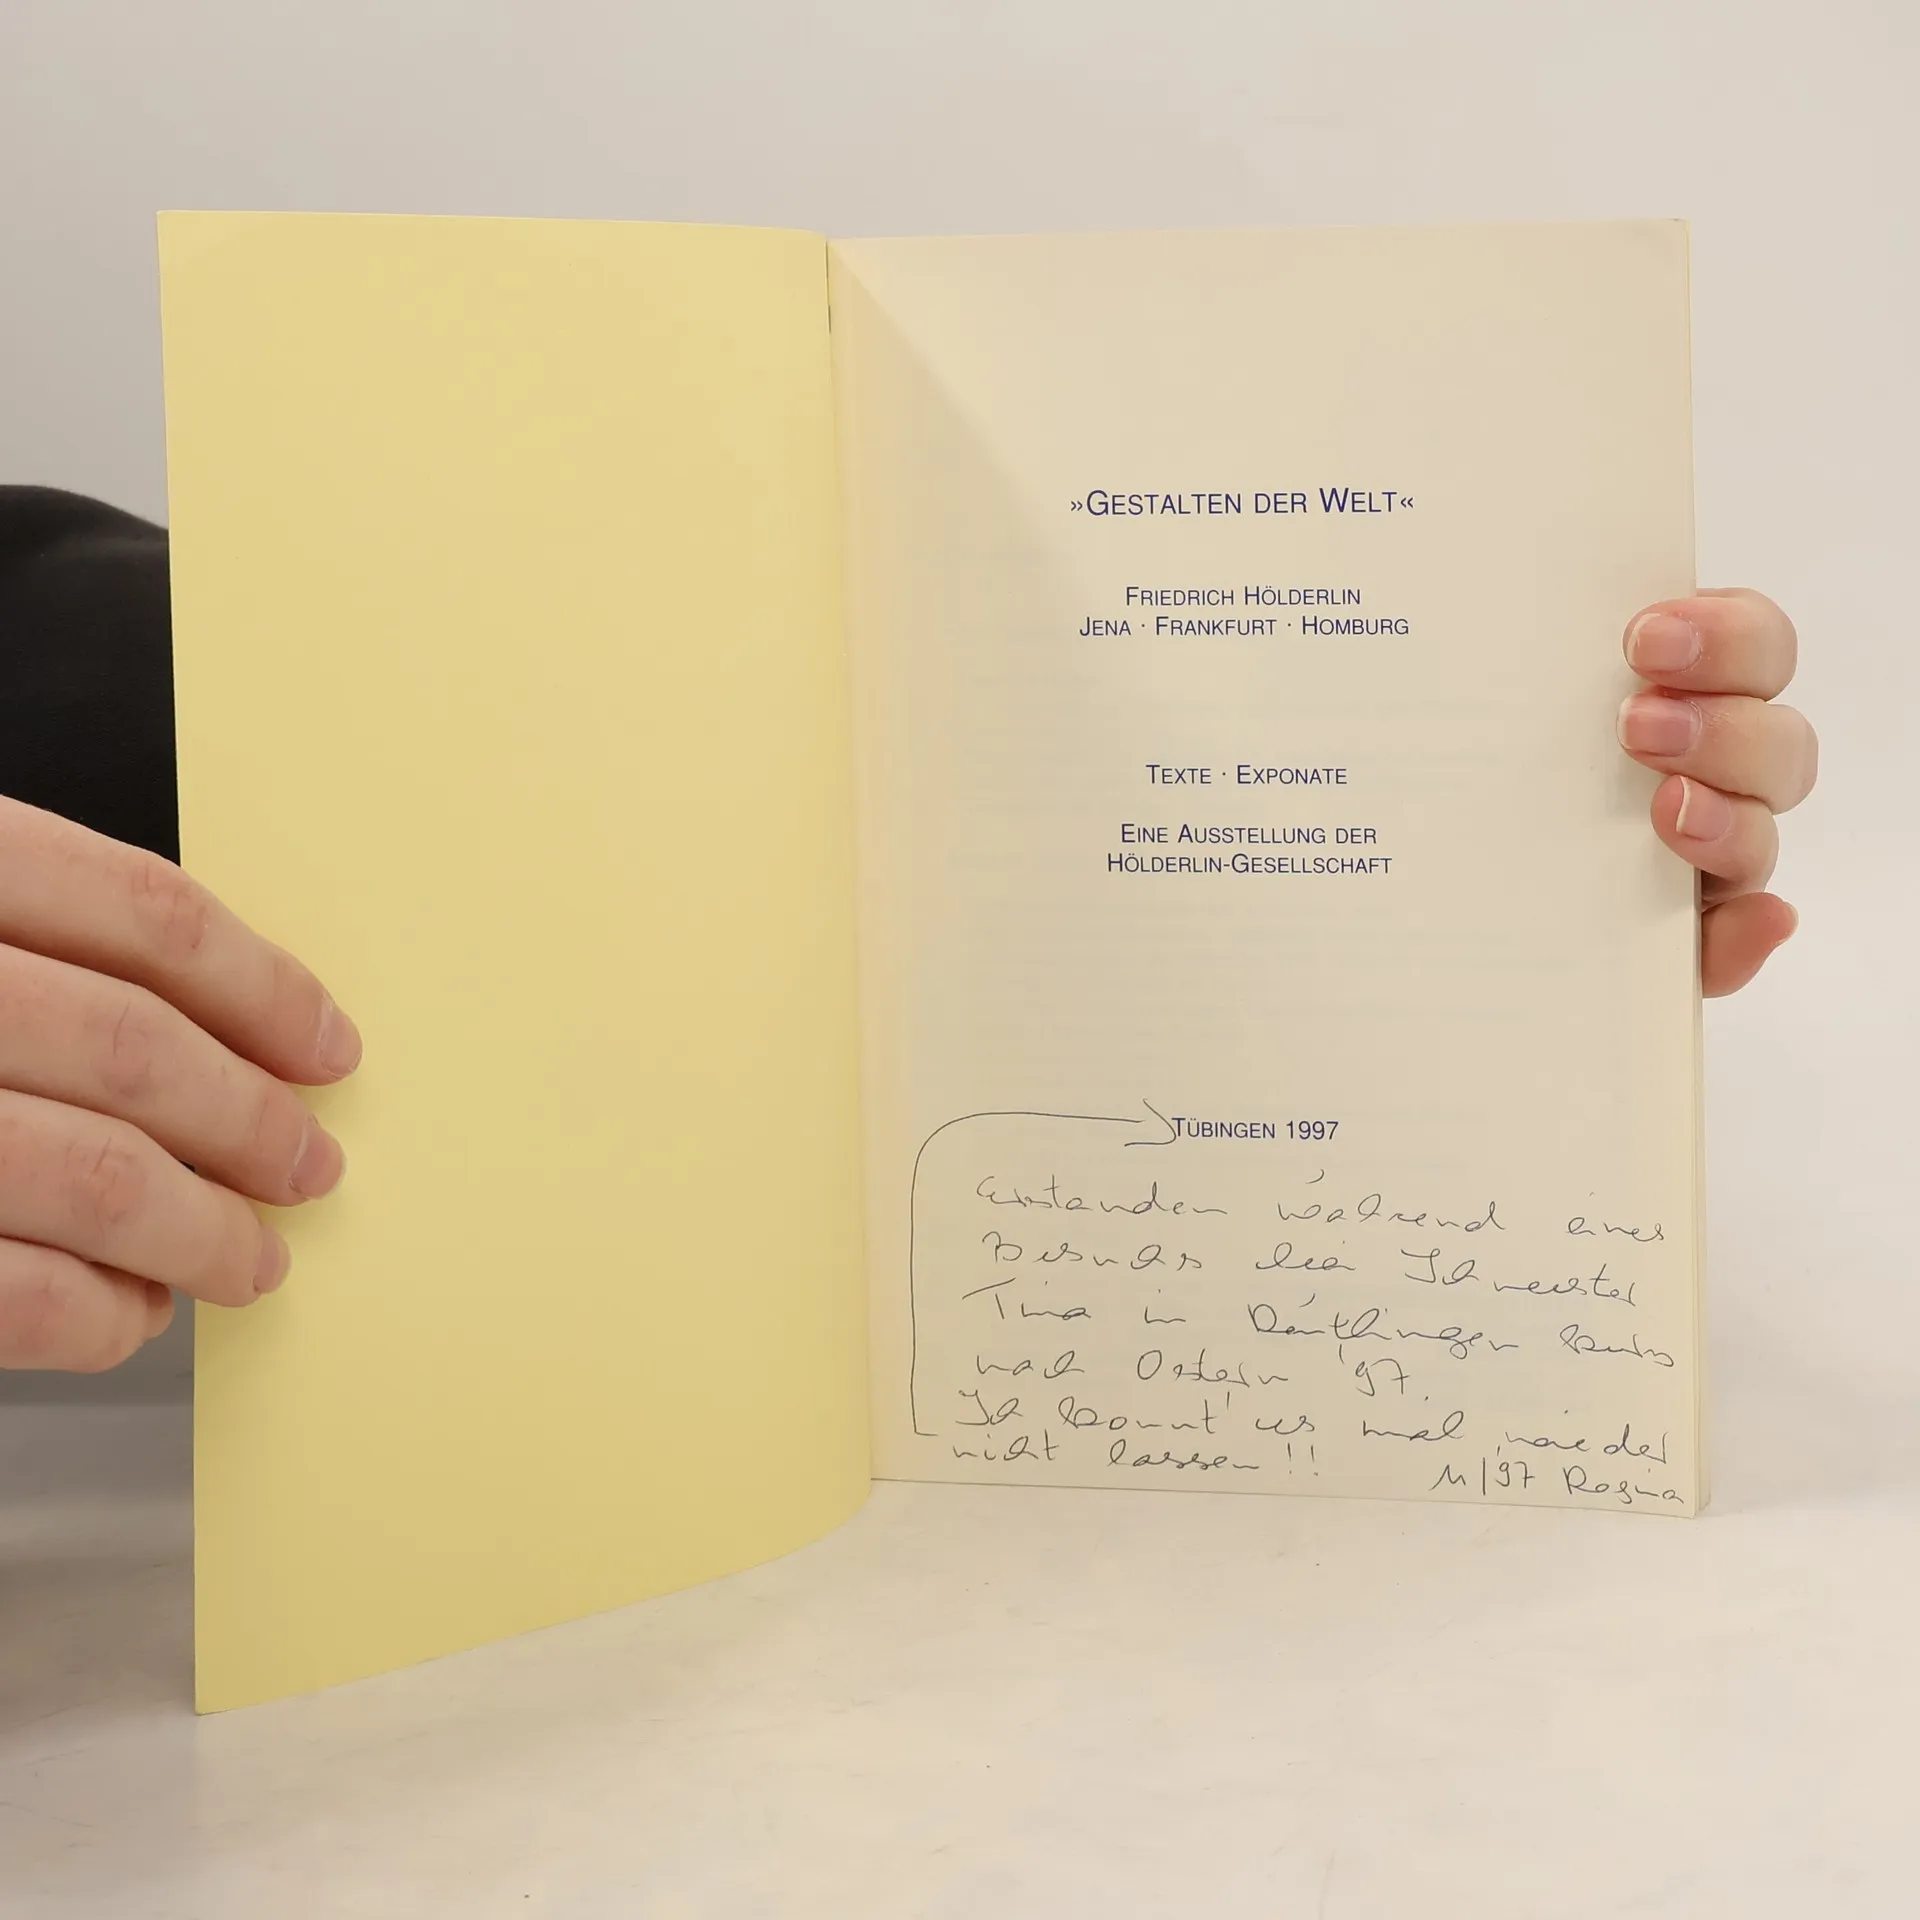 »GESTALTEN DER WELT«
FRIEDRICH HÖLDERLIN
JENA · FRANKFURT · HOMBURG
TEXTE · EXPONATE
EINE AUSSTELLUNG DER
HÖLDERLIN-GESELLSCHAFT
TÜBINGEN 1997
während eines
Besuchs bei Schwester
Tina in kurz
nach Ostern '97.
Ich konnt' es mal wieder
nicht lassen!!
/97 Regina